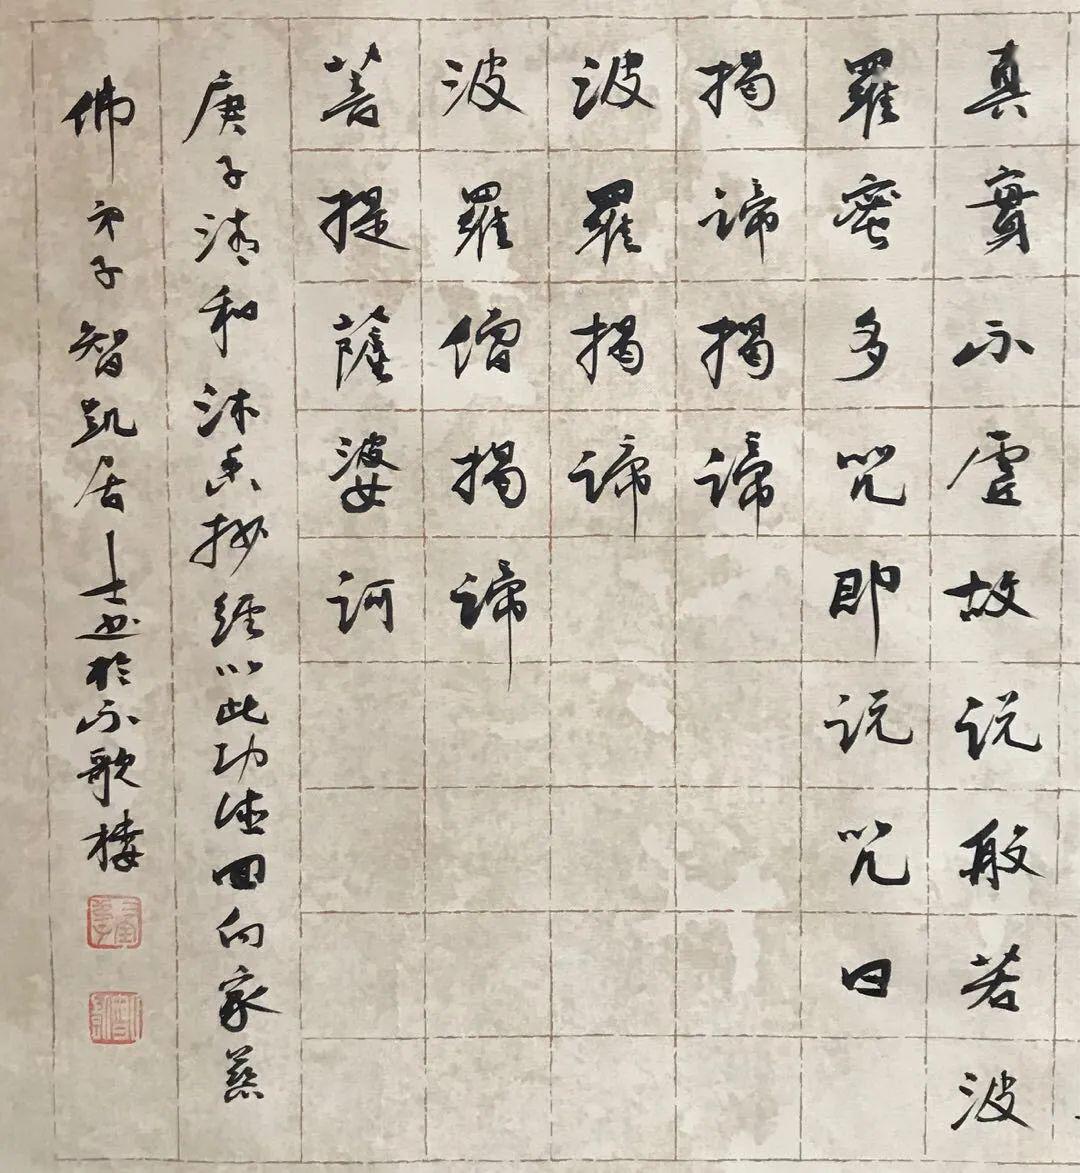 真實不虛故說般若波
羅蜜多咒即說咒曰
揭諦揭諦
波羅揭諦
波羅僧揭諦
菩提薩婆訶
庚子清和沐手抄經以此功德回向家慈
佛弟子智凱居士書於不歌樓